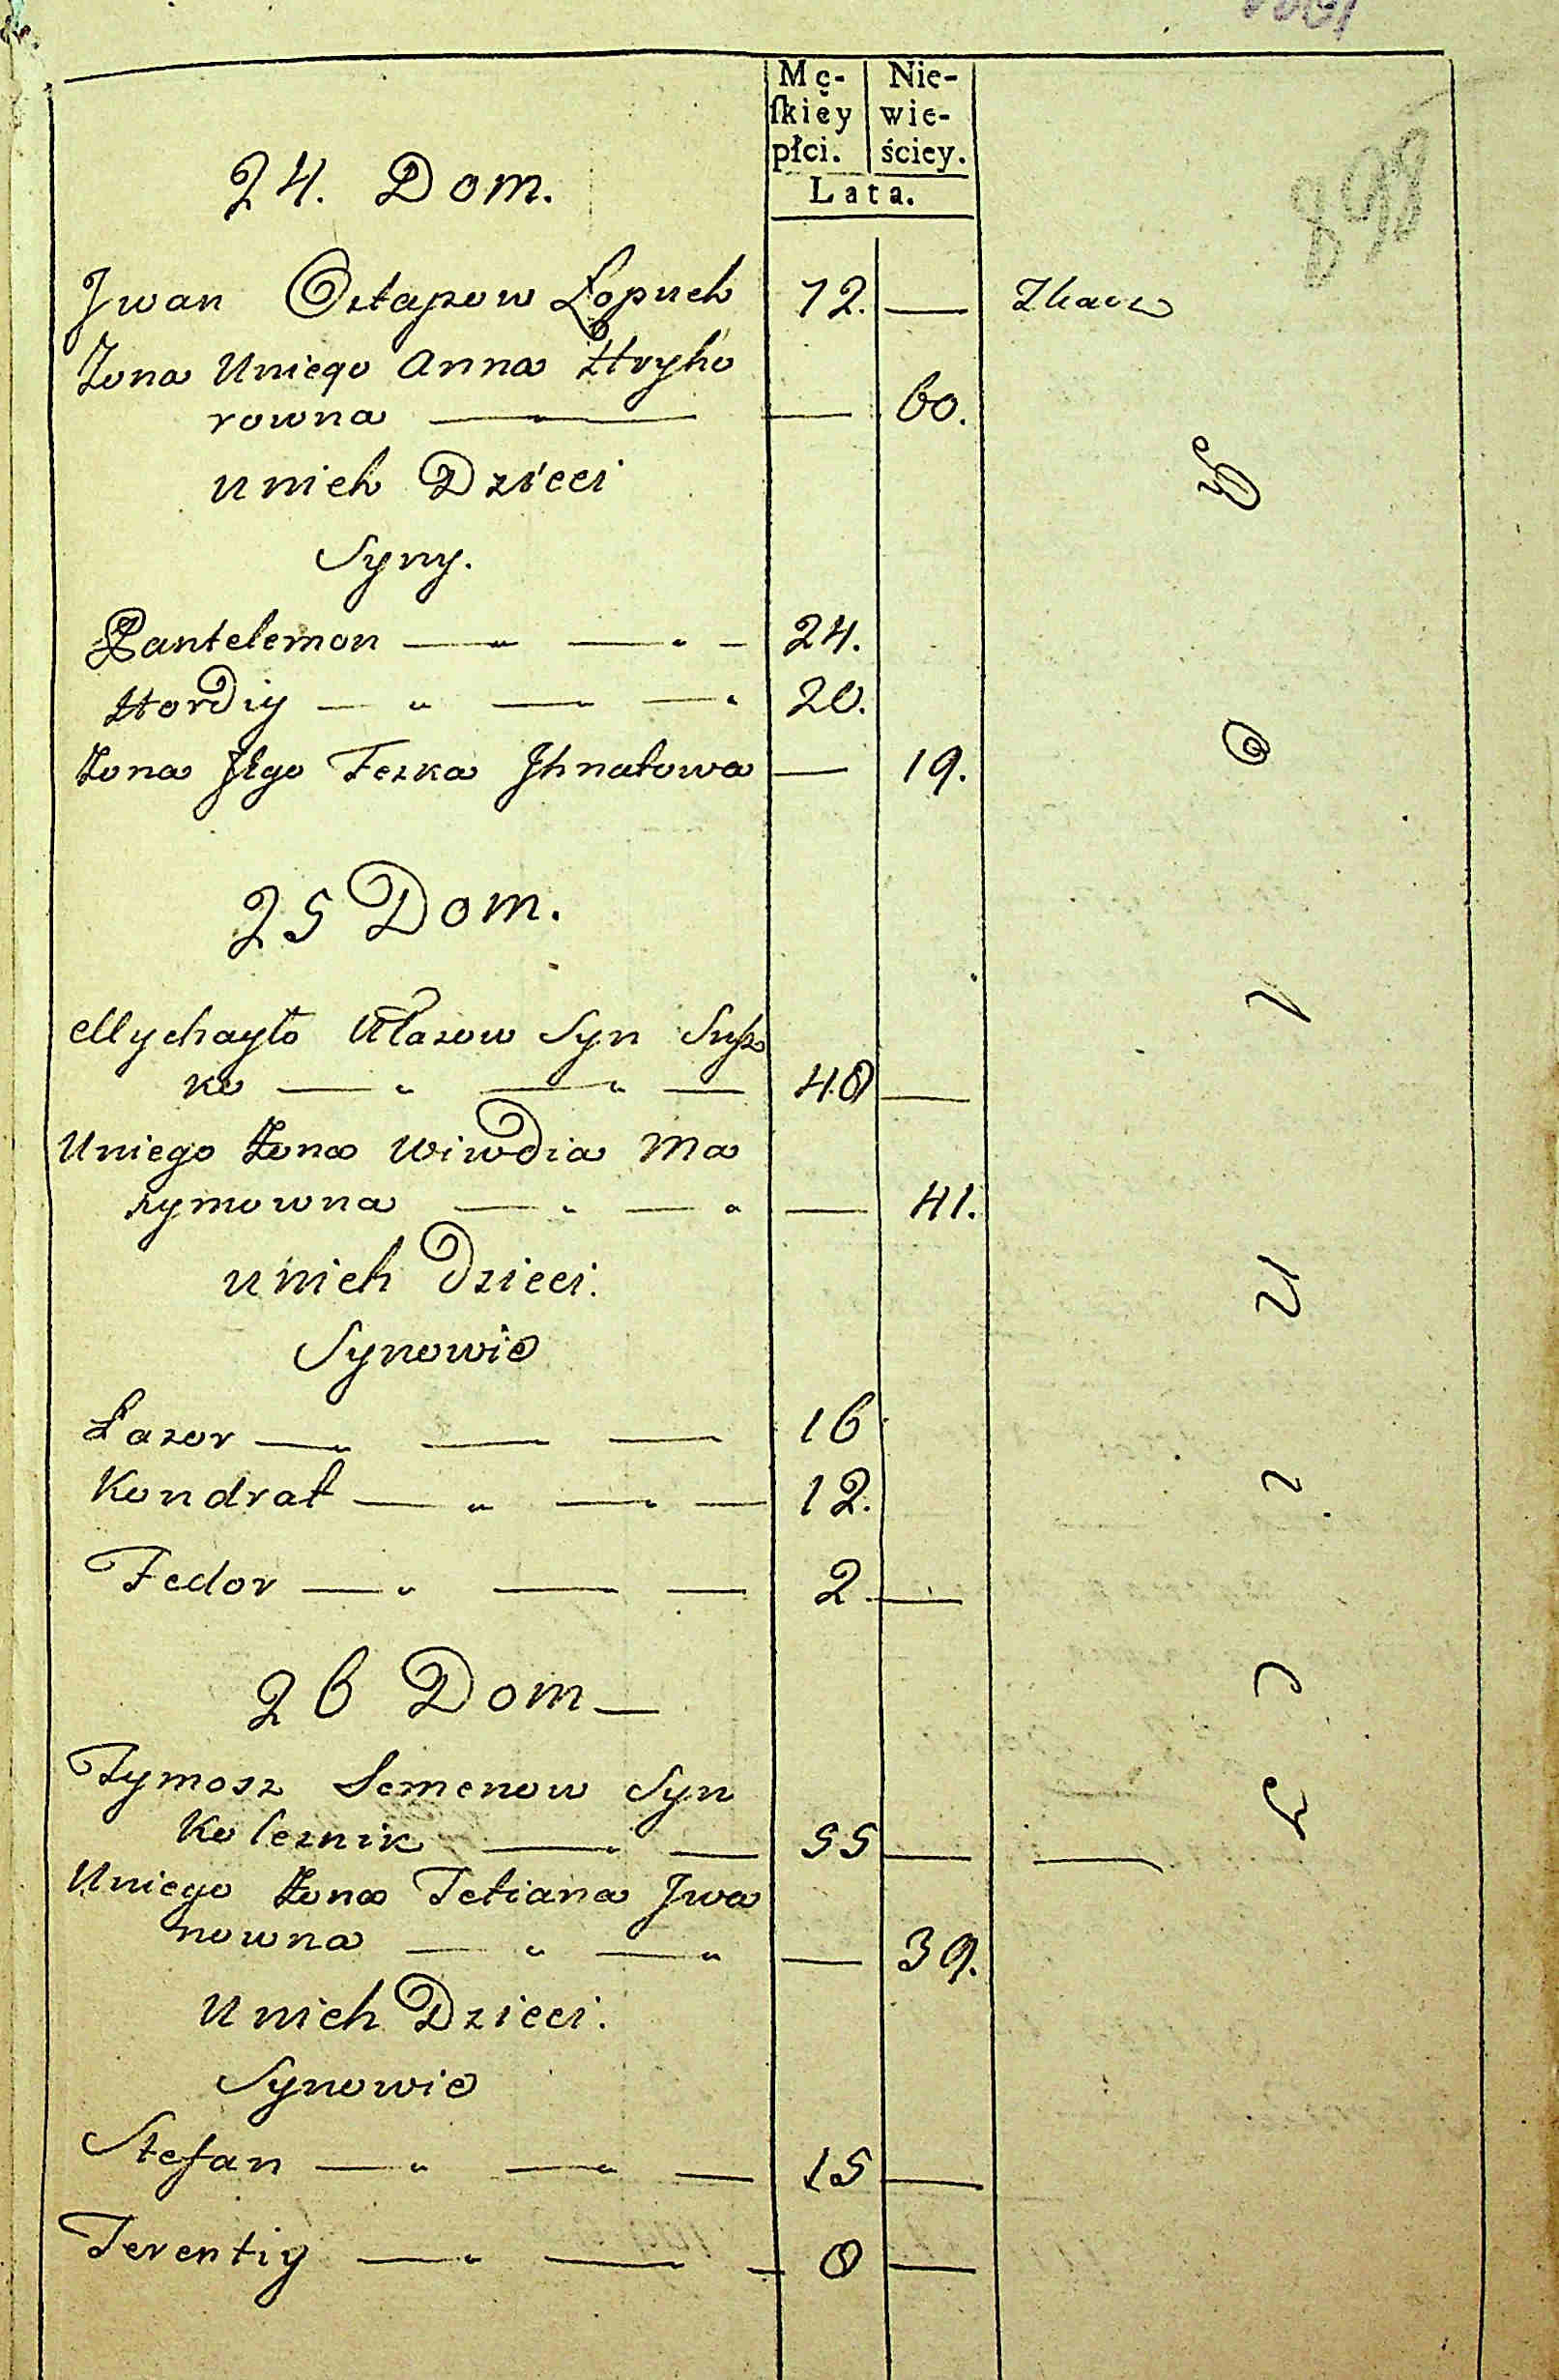 Mę- Nie-
ſkiey wie-
płci. ściey.
Lata.
898
24. Dom.
Jwan Ostapow Łopuch 72. — Tkacz
Żona Uniego Anna Hryho
rowna — — 60.
unich Dzieci
Syny.
Pantelemon — — - 24.
Hordiy — — — 20.
Żona Jego Feska Jhnatowa — 19.
25 Dom.
Mychayło Własow Syn Susz
ko — — — 48 —
Uniego Żona Wiwdia Ma
xymowna — — — 41.
unich Dzieci.
Synowie
Łazor — — — 16
Kondrat — — — 12.
Fedor — — — 2 —
26 Dom —
Tymosz Semenow Syn
Kolesnik — — 55 — —
Uniego Żona Tetiana Jwa
nowna — — — 39.
Unich Dzieci.
Synowie
Stefan — — — 15 —
Terentiy — — - 8 —